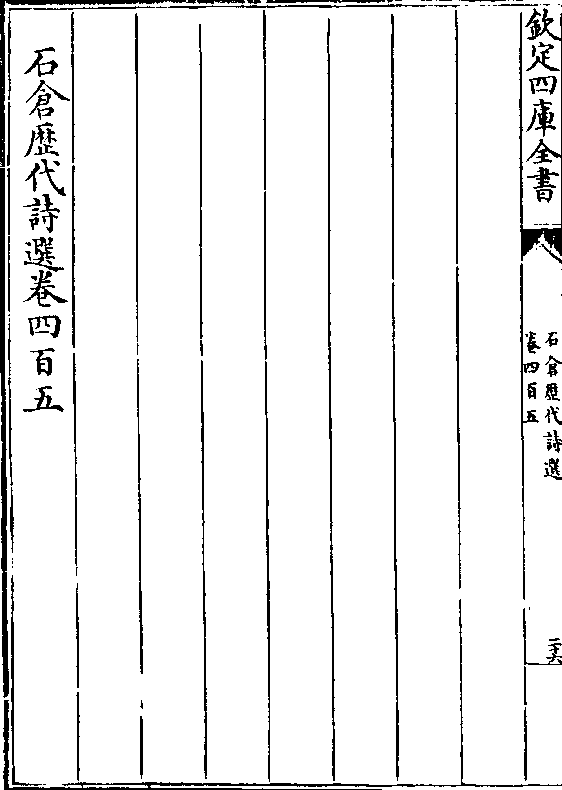 欽定四庫全書
石倉歴代詩選
卷四百五
二十六
石倉歴代詩選卷四百五